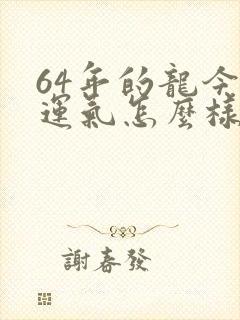 64年的龍今
運氣怎麼樣
謝春發